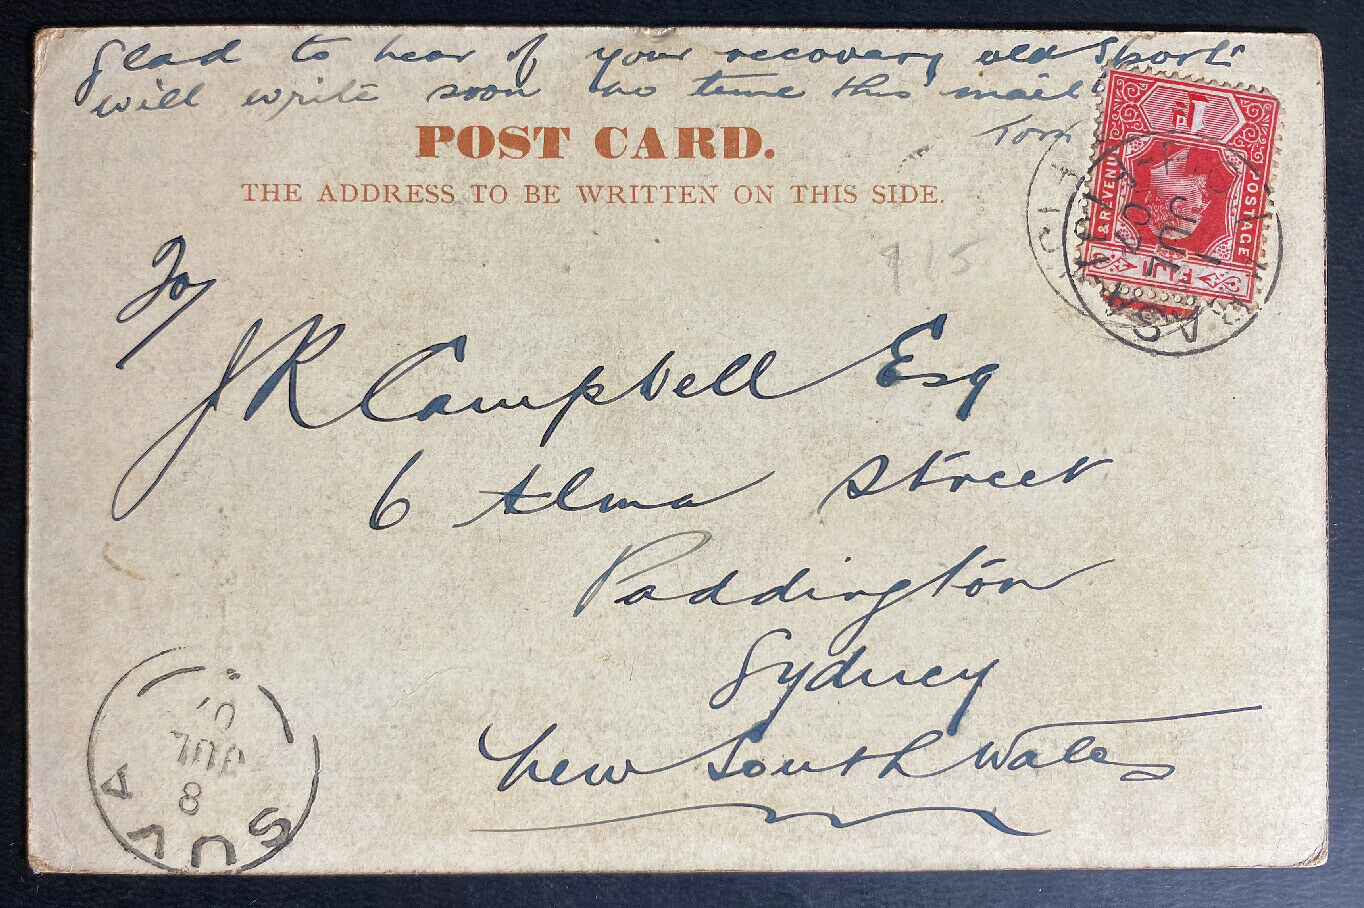 Glad to hear of your recovery old Sport
will write soon no time this mail
Tom
POST CARD.
THE ADDRESS TO BE WRITTEN ON THIS SIDE.
To
J R Campbell Esq
6 Alma Street
Paddington
Sydney
New South Wales
POSTAGE
& REVENUE
1
JUL
07
SUVA
8
JUL
07
715